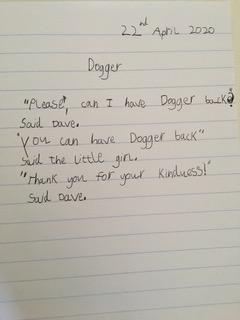 22nd April 2020
Dogger
"Please", can I have Dogger back?
Said Dave.
"You can have Dogger back"
Said the little girl.
"Thank you for your kindness!"
Said Dave.